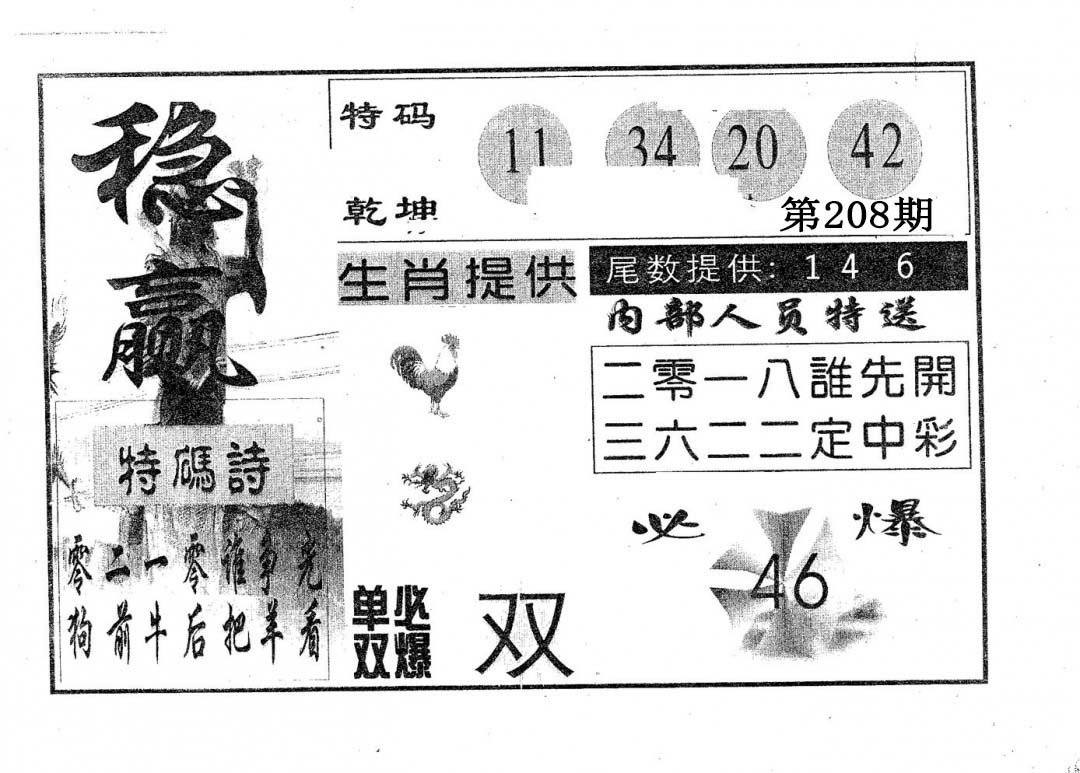 稳赢
特码
乾坤
11 34 20 42
第208期
生肖提供
尾数提供: 1 4 6
内部人员特送
二零一八誰先開
三六二二定中彩
特碼詩
零二一零谁争光
狗前牛后把羊看
必爆
46
单双必爆
双